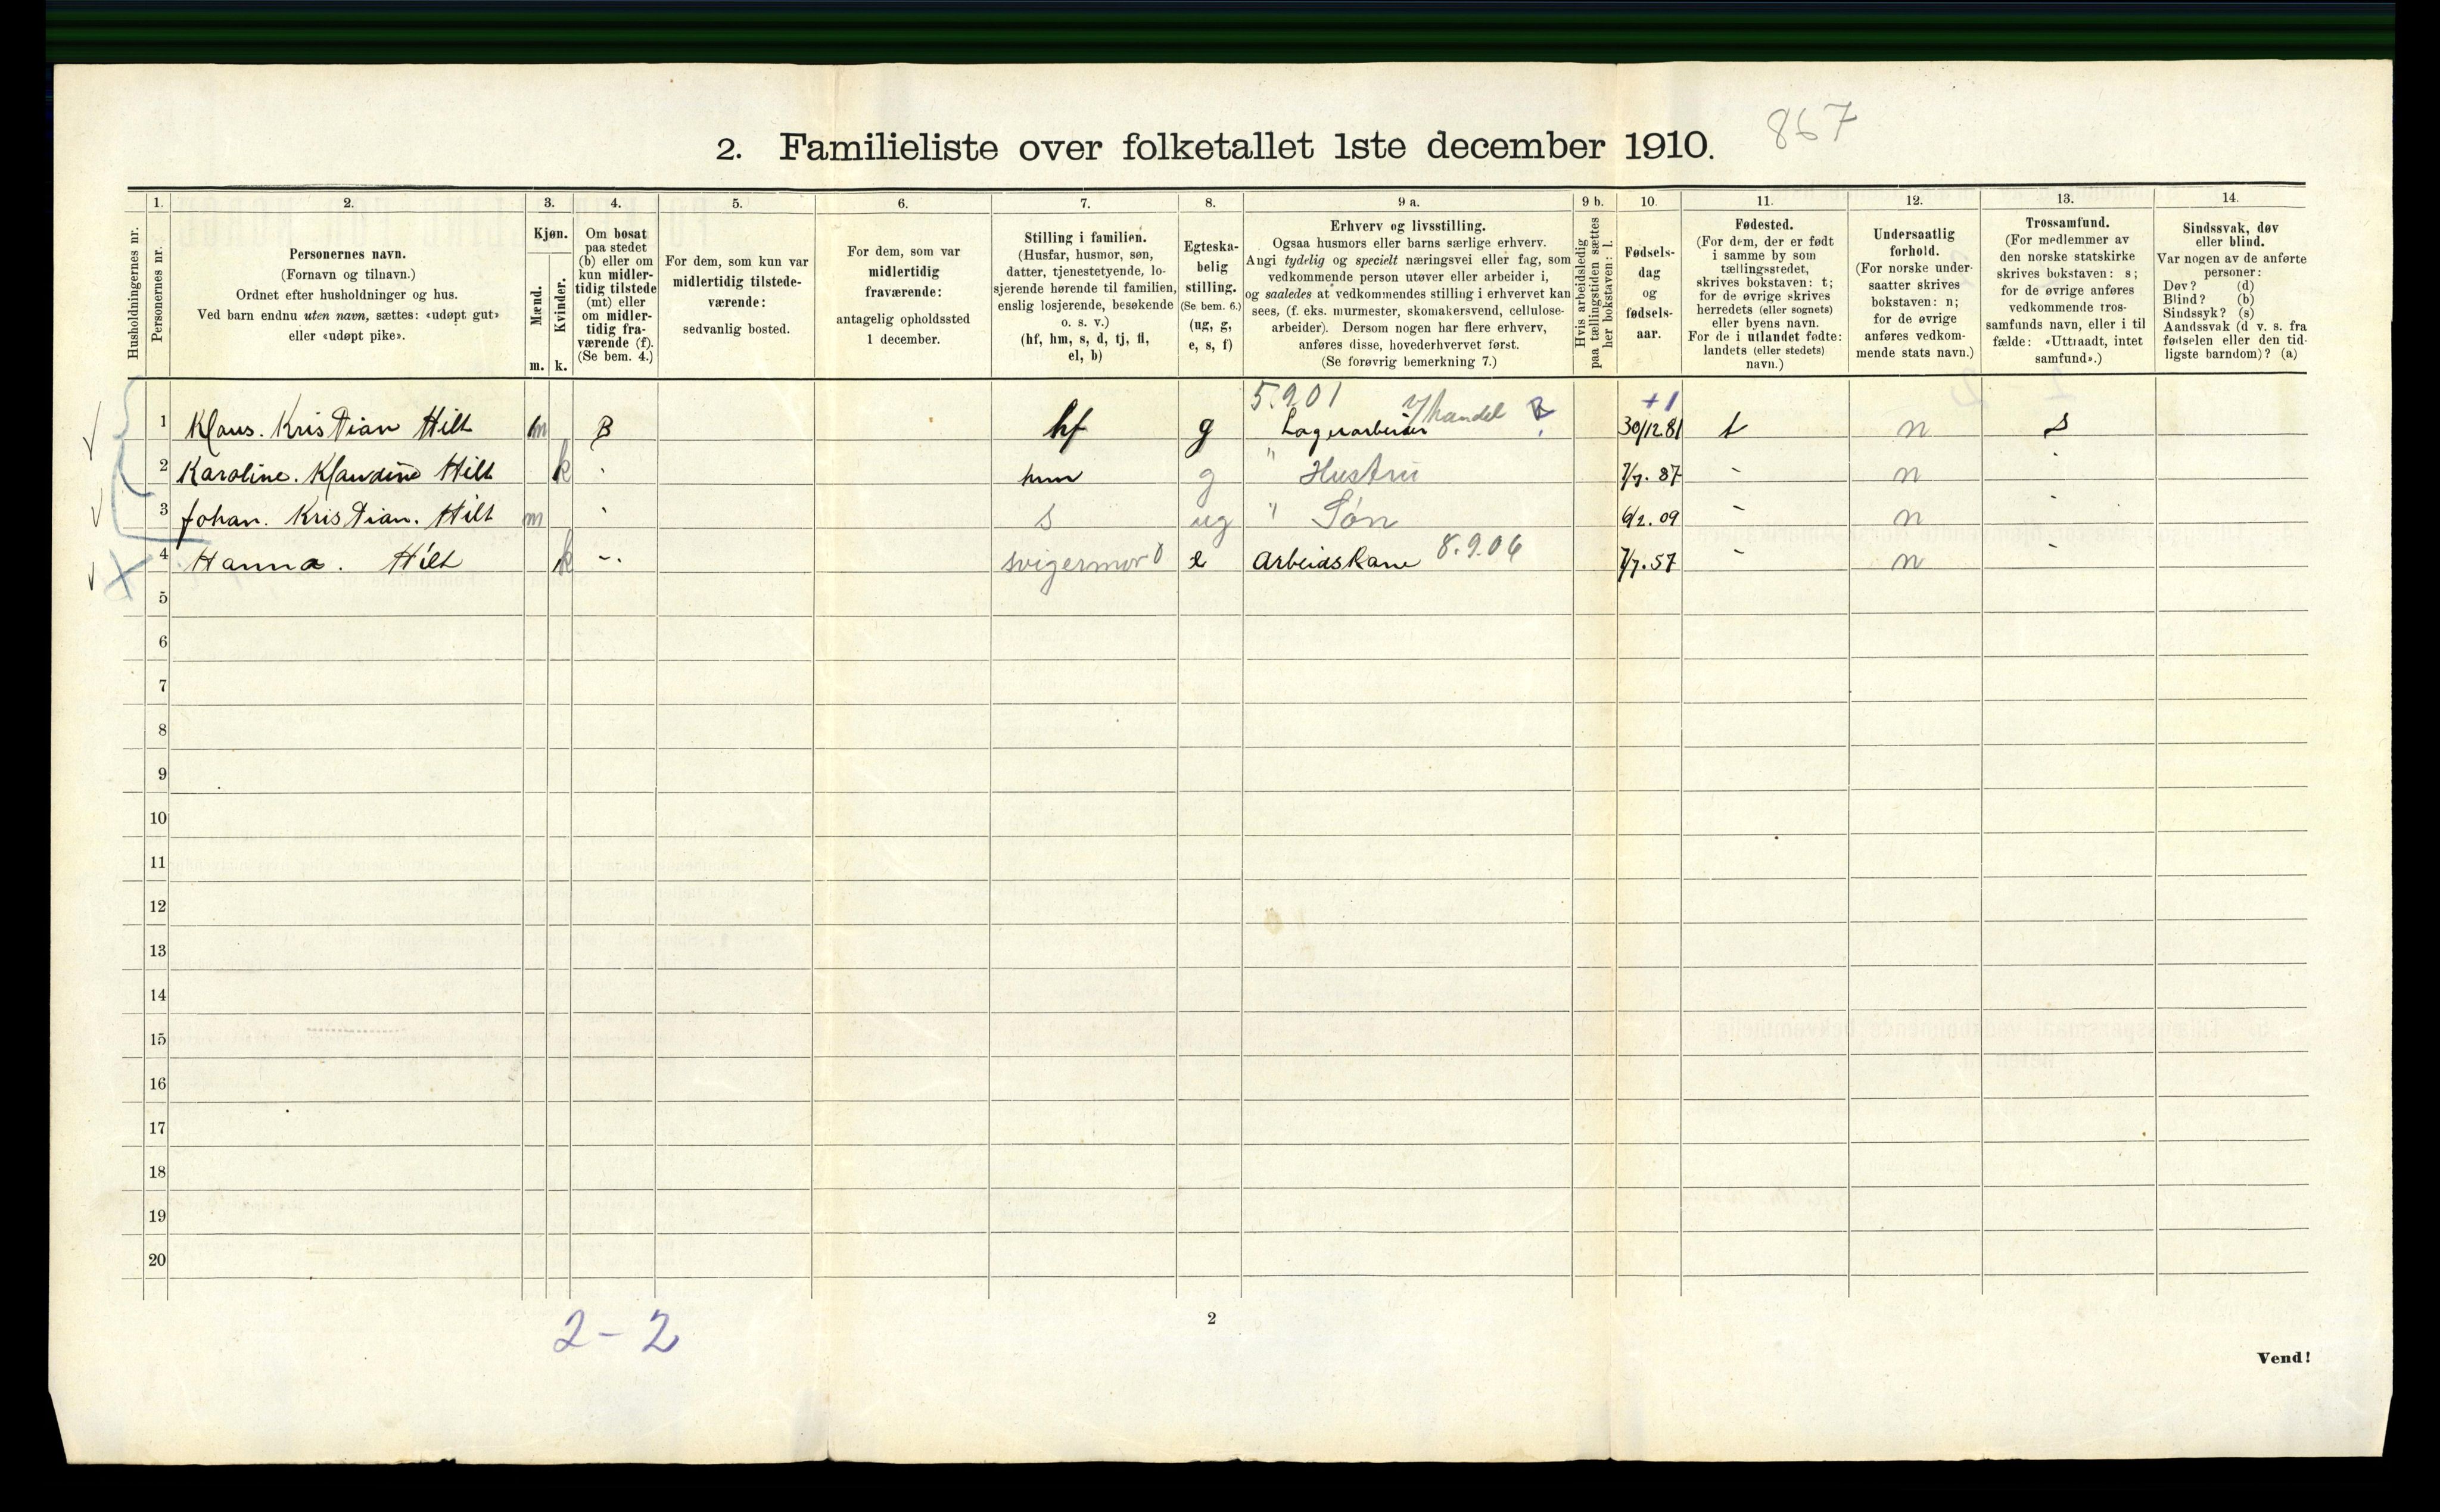 867
2. Familieliste over folketallet 1ste december 1910.
Husholdningernes nr.
1.
Personernes nr.
2.
Personernes navn.
(Fornavn og tilnavn.)
Ordnet efter husholdninger og hus.
Ved barn endnu uten navn, sættes: «udøpt gut»
eller «udøpt pike».
3.
Kjøn.
Mænd.
m.
Kvinder.
k.
4.
Om bosat
paa stedet
(b) eller om
kun midler-
tidig tilstede
(mt) eller
om midler-
tidig fra-
værende (f).
(Se bem. 4.)
5.
For dem, som kun var
midlertidig tilstede-
værende:
sedvanlig bosted.
6.
For dem, som var
midlertidig
fraværende:
antagelig opholdssted
1 december.
7.
Stilling i familien.
(Husfar, husmor, søn,
datter, tjenestetyende, lo-
sjerende hørende til familien,
enslig losjerende, besøkende
o. s. v.)
(hf, hm, s, d, tj, fl,
el, b)
8.
Egteska-
belig
stilling.
(Se bem. 6.)
(ug, g,
e, s, f)
9 a.
Erhverv og livsstilling.
Ogsaa husmors eller barns særlige erhverv.
Angi tydelig og specielt næringsvei eller fag, som
vedkommende person utøver eller arbeider i,
og saaledes at vedkommendes stilling i erhvervet kan
sees, (f. eks. murmester, skomakersvend, cellulose-
arbeider). Dersom nogen har flere erhverv,
anføres disse, hovederhvervet først.
(Se forøvrig bemerkning 7.)
9 b.
Hvis arbeidsledig
paa tællingstiden sættes
her bokstaven: l.
10.
Fødsels-
dag
og
fødsels-
aar.
11.
Fødested.
(For dem, der er født
i samme by som
tællingsstedet,
skrives bokstaven: t;
for de øvrige skrives
herredets (eller sognets)
eller byens navn.
For de i utlandet fødte:
landets (eller stedets)
navn.)
12.
Undersaatlig
forhold.
(For norske under-
saatter skrives
bokstaven: n;
for de øvrige
anføres vedkom-
mende stats navn.)
13.
Trossamfund.
(For medlemmer av
den norske statskirke
skrives bokstaven: s;
for de øvrige anføres
vedkommende tros-
samfunds navn, eller i til
fælde: «Uttraadt, intet
samfund».)
14.
Sindssvak, døv
eller blind.
Var nogen av de anførte
personer:
Døv? (d)
Blind? (b)
Sindssyk? (s)
Aandssvak (d v. s. fra
fødselen eller den tid-
ligste barndom)? (a)
5.901 v/handel +1
1 Klaus. Kristian Hilt m B hf g Lagerarbeider 30/12 81 t n s
2 Karoline. Klaudine Hilt k hm g " Hustru 7/7. 87 - n
3 Johan. Kristian. Hilt m s ug " Søn 6/2. 09 - n
4 Hanna. Hilt k -. svigermor e Arbeidskone 8.9.06 7/7. 57 - n -
5
6
7
8
9
10
11
12
13
14
15
16
17
18
19
20
2-2
2
Vend!